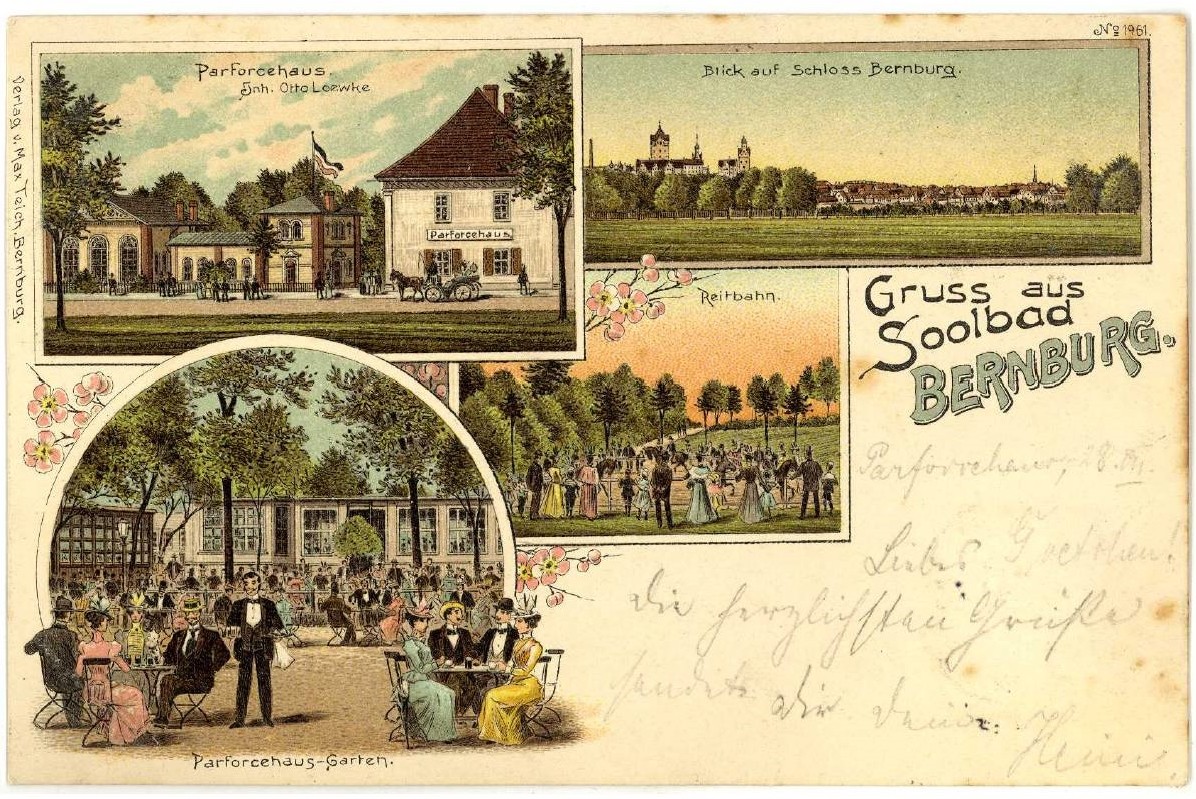 No 1961.
Parforcehaus.
Inh. Otto Loewke
Blick auf Schloss Bernburg.
Verlag v. Max Teich, Bernburg.
Parforcehaus
Reitbahn.
Gruss aus
Soolbad
BERNBURG.
Liebes
die herzlichsten Grüße
sendet dir
Parforcehaus-Garten.